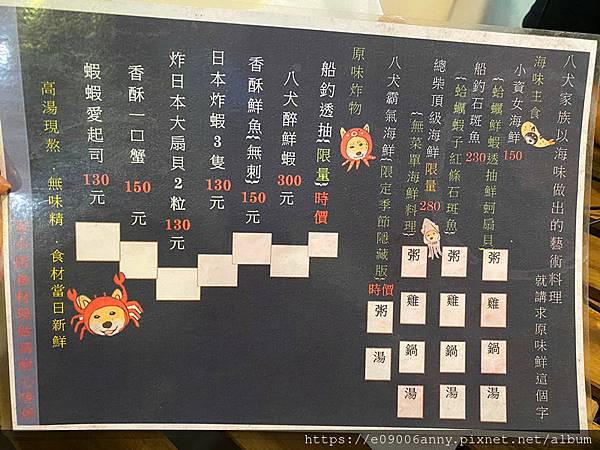 八犬家族以海味做出的藝術料理
就講求原味鮮這個字
海味主食
小資女海鮮150
(蛤蠣鮮蝦透抽鮮蚵扇貝)
船釣石斑魚230
(蛤蠣蝦子紅條石斑魚)
總柴頂級海鮮限量280
(無菜單海鮮料理)
八犬霸氣海鮮(限定季節隱藏版)時價
粥 粥 粥
雞 雞 雞
鍋 鍋 鍋
湯 湯 湯
粥
湯
原味炸物
船釣透抽(限量)時價
八犬醉鮮蝦300元
香酥鮮魚(無刺)150元
日本炸蝦3隻130元
炸日本大扇貝2粒130元
香酥一口蟹150元
蝦蝦愛起司130元
高湯現熬.無味精.食材當日新鮮
https://e09006anny.pixnet.net/album